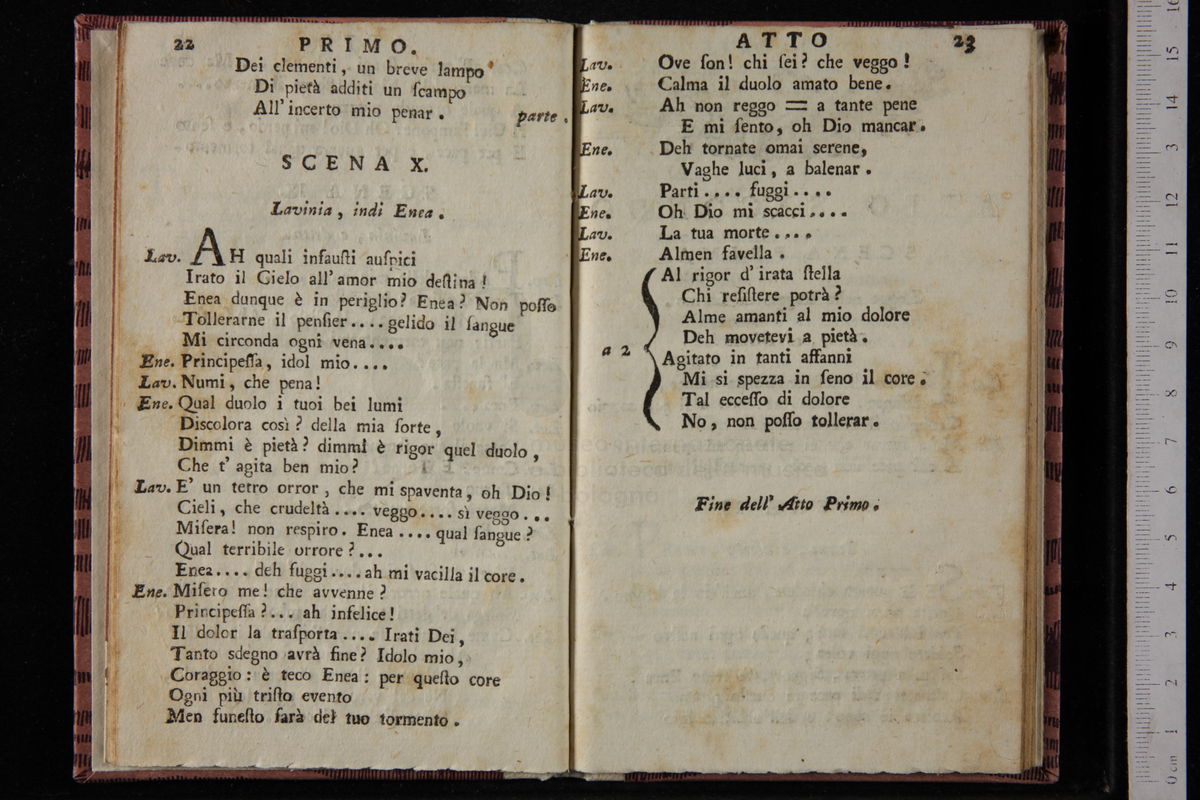 22 PRIMO.
Dei clementi, un breve lampo
Di pietà additi un ſcampo
All' incerto mio penar. parte.
SCENA X.
Lavinia, indi Enea.
Lav. AH quali infauſti auſpici
Irato il Cielo all' amor mio deſtina!
Enea dunque è in periglio? Enea? Non poſſo
Tollerarne il penſier.... gelido il ſangue
Mi circonda ogni vena....
Ene. Principeſſa, idol mio....
Lav. Numi, che pena!
Ene. Qual duolo i tuoi bei lumi
Discolora così? della mia ſorte,
Dimmi è pietà? dimmi è rigor quel duolo,
Che t' agita ben mio?
Lav. E' un tetro orror, che mi spaventa, oh Dio!
Cieli, che crudeltà.... veggo.... sì veggo...
Miſera! non respiro. Enea.... qual ſangue?
Qual terribile orrore?...
Enea.... deh fuggi.... ah mi vacilla il core.
Ene. Miſero me! che avvenne?
Principeſſa?... ah infelice!
Il dolor la traſporta.... Irati Dei,
Tanto sdegno avrà fine? Idolo mio,
Coraggio: è teco Enea: per queſto core
Ogni più triſto evento
Men funeſto ſarà del tuo tormento.
ATTO 23
Lav. Ove ſon! chi ſei? che veggo!
Ene. Calma il duolo amato bene.
Lav. Ah non reggo = a tante pene
E mi ſento, oh Dio mancar.
Ene. Deh tornate omai serene,
Vaghe luci, a balenar.
Lav. Parti.... fuggi....
Ene. Oh Dio mi scacci....
Lav. La tua morte....
Ene. Almen favella.
Al rigor d' irata ſtella
Chi reſiſtere potrà?
Alme amanti al mio dolore
Deh movetevi a pietà.
a 2
Agitato in tanti affanni
Mi si spezza in ſeno il core.
Tal ecceſſo di dolore
No, non poſſo tollerar.
Fine dell' Atto Primo.